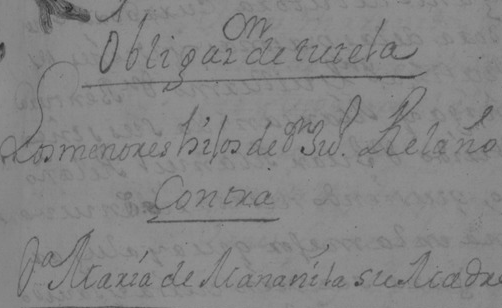 Obligaz.on de tutela
Los menores hijos de D.n Ju.o Relaño
Contra
D.a Maria de Mananita su Madre